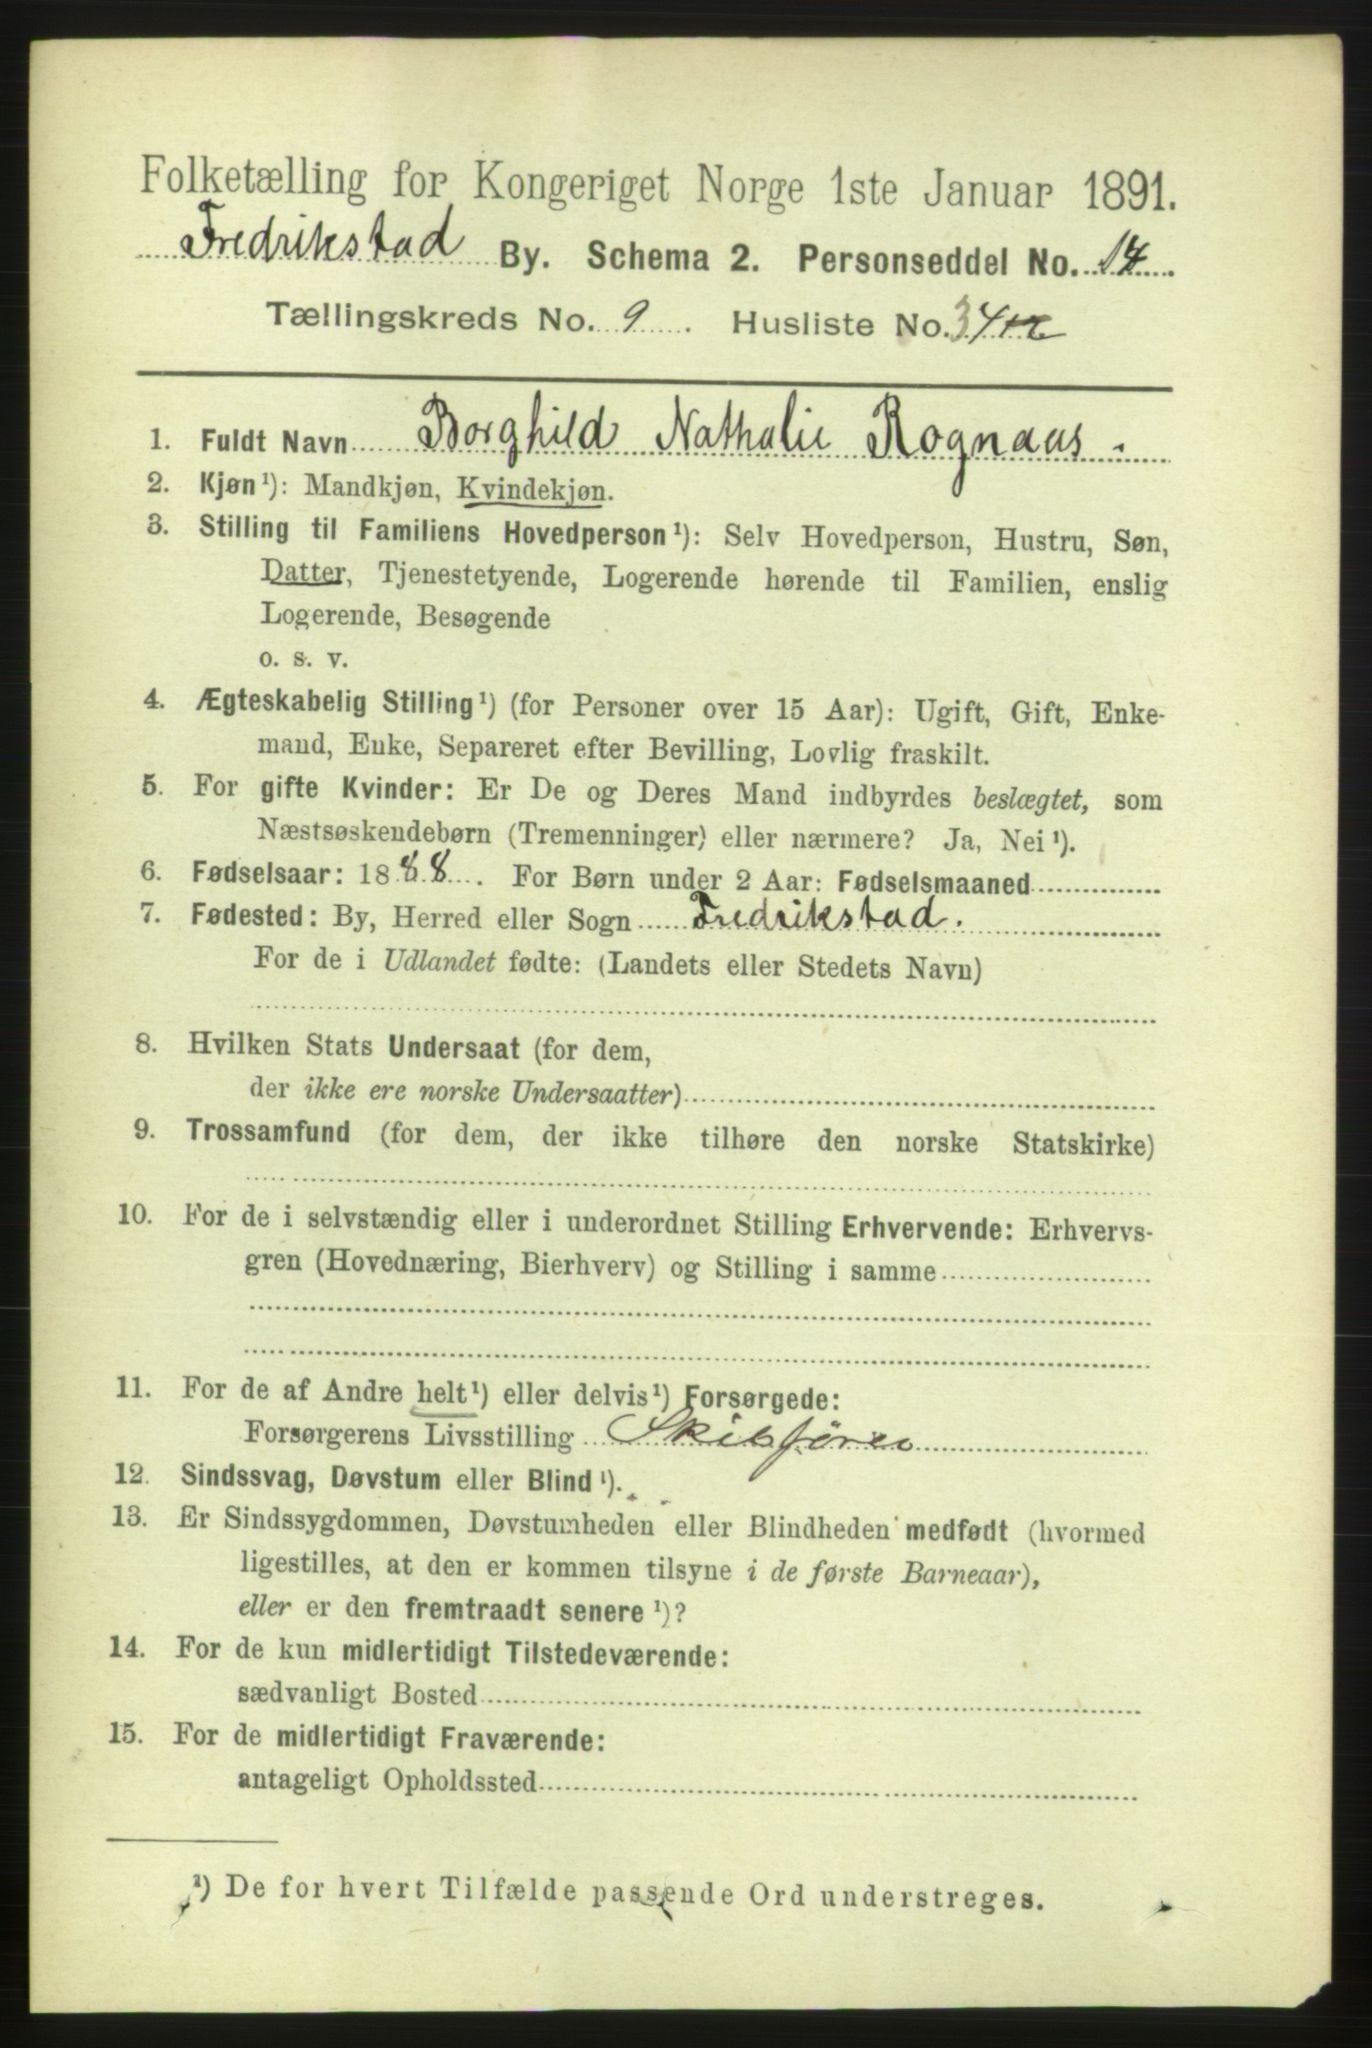 Folketælling for Kongeriget Norge 1ste Januar 1891.
Fredrikstad By. Schema 2. Personseddel No. 14.
Tællingskreds No. 9. Husliste No. 34
1. Fuldt Navn Borghild Nathalie Rognaas.
2. Kjøn¹): Mandkjøn, Kvindekjøn.
3. Stilling til Familiens Hovedperson¹): Selv Hovedperson, Hustru, Søn,
Datter, Tjenestetyende, Logerende hørende til Familien, enslig
Logerende, Besøgende
o. s. v.
4. Ægteskabelig Stilling¹) (for Personer over 15 Aar): Ugift, Gift, Enke-
mand, Enke, Separeret efter Bevilling, Lovlig fraskilt.
5. For gifte Kvinder: Er De og Deres Mand indbyrdes beslægtet, som
Næstsøskendebørn (Tremenninger) eller nærmere? Ja, Nei¹).
6. Fødselsaar: 1888. For Børn under 2 Aar: Fødselsmaaned
7. Fødested: By, Herred eller Sogn Fredrikstad.
For de i Udlandet fødte: (Landets eller Stedets Navn)
8. Hvilken Stats Undersaat (for dem,
der ikke ere norske Undersaatter)
9. Trossamfund (for dem, der ikke tilhøre den norske Statskirke)
10. For de i selvstændig eller i underordnet Stilling Erhvervende: Erhvervs-
gren (Hovednæring, Bierhverv) og Stilling i samme
11. For de af Andre helt¹) eller delvis¹) Forsørgede:
Forsørgerens Livsstilling Skibsfører
12. Sindssvag, Døvstum eller Blind¹).
13. Er Sindssygdommen, Døvstumheden eller Blindheden medfødt (hvormed
ligestilles, at den er kommen tilsyne i de første Barneaar),
eller er den fremtraadt senere¹)?
14. For de kun midlertidigt Tilstedeværende:
sædvanligt Bosted
15. For de midlertidigt Fraværende:
antageligt Opholdssted
¹) De for hvert Tilfælde passende Ord understreges.